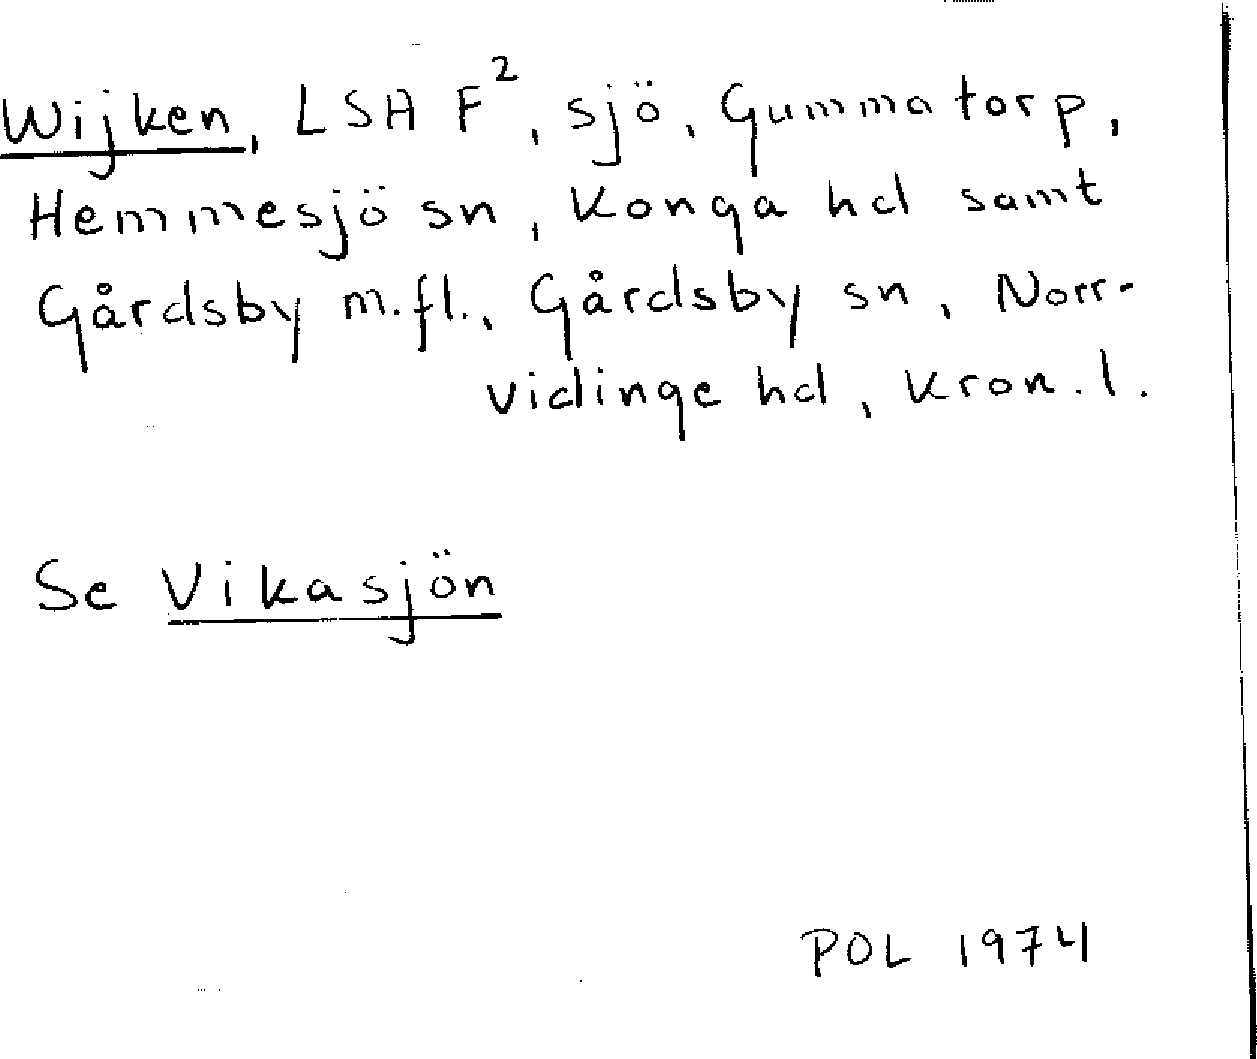 Wijken, LSA F², sjö, Gummatorp,
Hemmesjö sn, Konga hd samt
Gårdsby m.fl., Gårdsby sn, Norr-
vidinge hd, Kron. l.
Se Vikasjön
POL 1974